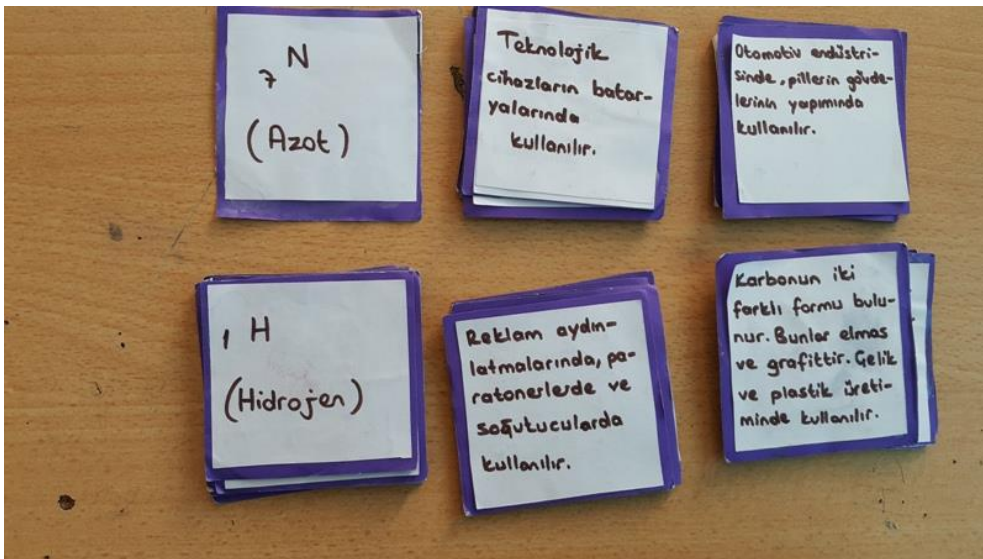 N
7
(Azot)
Teknolojik
cihazların batar-
yalarında
kullanılır.
Otomotiv endüstri-
sinde, pillerin gövde-
lerinin yapımında
kullanılır.
1 H
(Hidrojen)
Reklam aydın-
latmalarında, pa-
ratonerlerde ve
soğutucularda
kullanılır.
Karbonun iki
farklı formu bulu-
nur. Bunlar elmas
ve grafittir. Çelik
ve plastik üreti-
minde kullanılır.